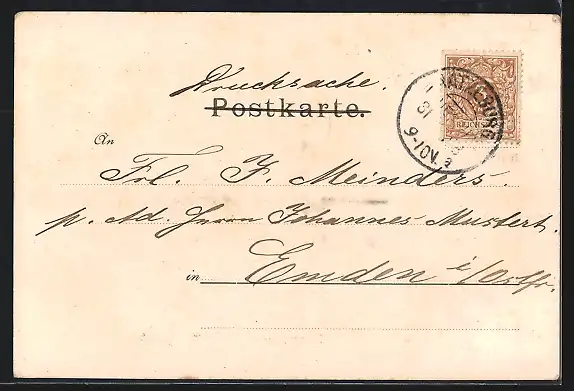 Drucksache.
Postkarte.
An
Frl. F. Meinders.
p. Ad. Herrn Johannes Mustert.
in Emden i/Ostfr.
31
9-10V.